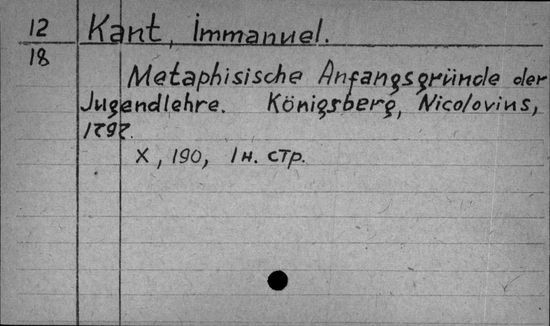 12
18
Kant, Immanuel.
Metaphisische Anfangsgründe der
Jugendlehre. Königsberg, Nicolovius,
1797.
X, 190, 1 н. стр.